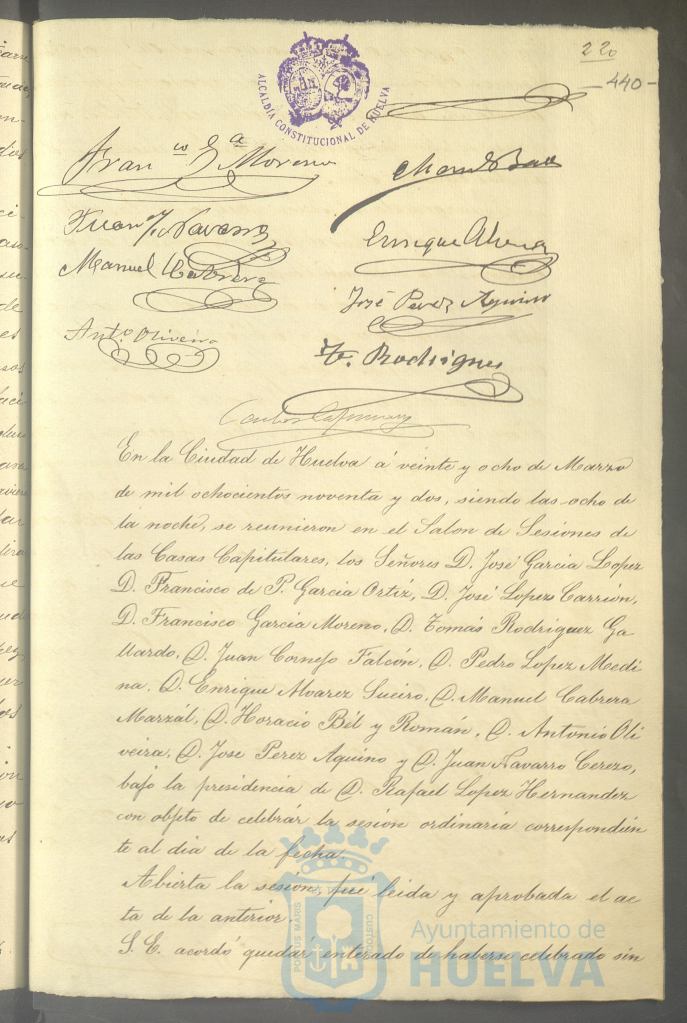 220
-440-
ALCALDÍA CONSTITUCIONAL DE HUELVA
Fran co Ga Moreno
Juan N. Navarro
Enrique Alvarez
Manuel Cabrera
José Perez Aquino
Anto Oliveira
T. Rodriguez
Carlos
En la Ciudad de Huelva á veinte y ocho de Marzo
de mil ochocientos noventa y dos, siendo las ocho de
la noche, se reunieron en el Salon de Sesiones de
las Casas Capitulares, los Señores D. José Garcia Lopez
D. Francisco de P. Garcia Ortiz, D. José Lopez Carrión,
D. Francisco Garcia Moreno, D. Tomás Rodriguez Ga
llardo, D. Juan Cornejo Falcón, D. Pedro Lopez Medi
na, D. Enrique Alvarez Sueiro, D. Manuel Cabrera
Marzál, D. Horacio Bél y Román, D. Antonio Oli
veira, D. Jose Perez Aquino y D. Juan Navarro Cerezo,
bajo la presidencia de D. Rafael Lopez Hernandez
con objeto de celebrár la sesión ordinaria correspondien
te al dia de la fecha.
Abierta la sesión, fué leida y aprobada el ac
ta de la anterior.
S. E. acordó quedár enterado de haberse celebrado sin
PORTUS MARIS CUSTODIA
Ayuntamiento de
HUELVA